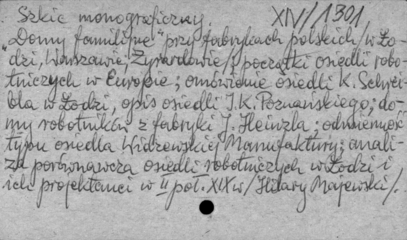 Szkic monograficzny. XIV/1301
„Domy familijne" przy fabrykach polskich /w Ło-
dzi, Warszawie, Żyrardowie/; początki osiedli robo-
tniczych w Europie; omówienie osiedli K. Schei-
bla w Łodzi, opis osiedli I.K. Poznańskiego; do-
my robotników z fabryki J. Heinzla; odmienność
typu osiedla Widzewskiej Manufaktury; anali-
za porównawcza osiedli robotniczych w Łodzi i
ich projektanci w II poł. XIX w /Hilary Majewski/.